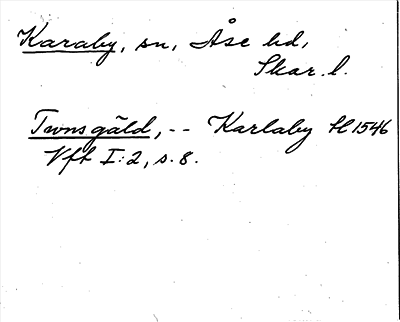 Karaby, sn, Åse hd,
Skar. l.
Tunsgäld, -- Karlaby H 1546
Vft I:2, s. 8.